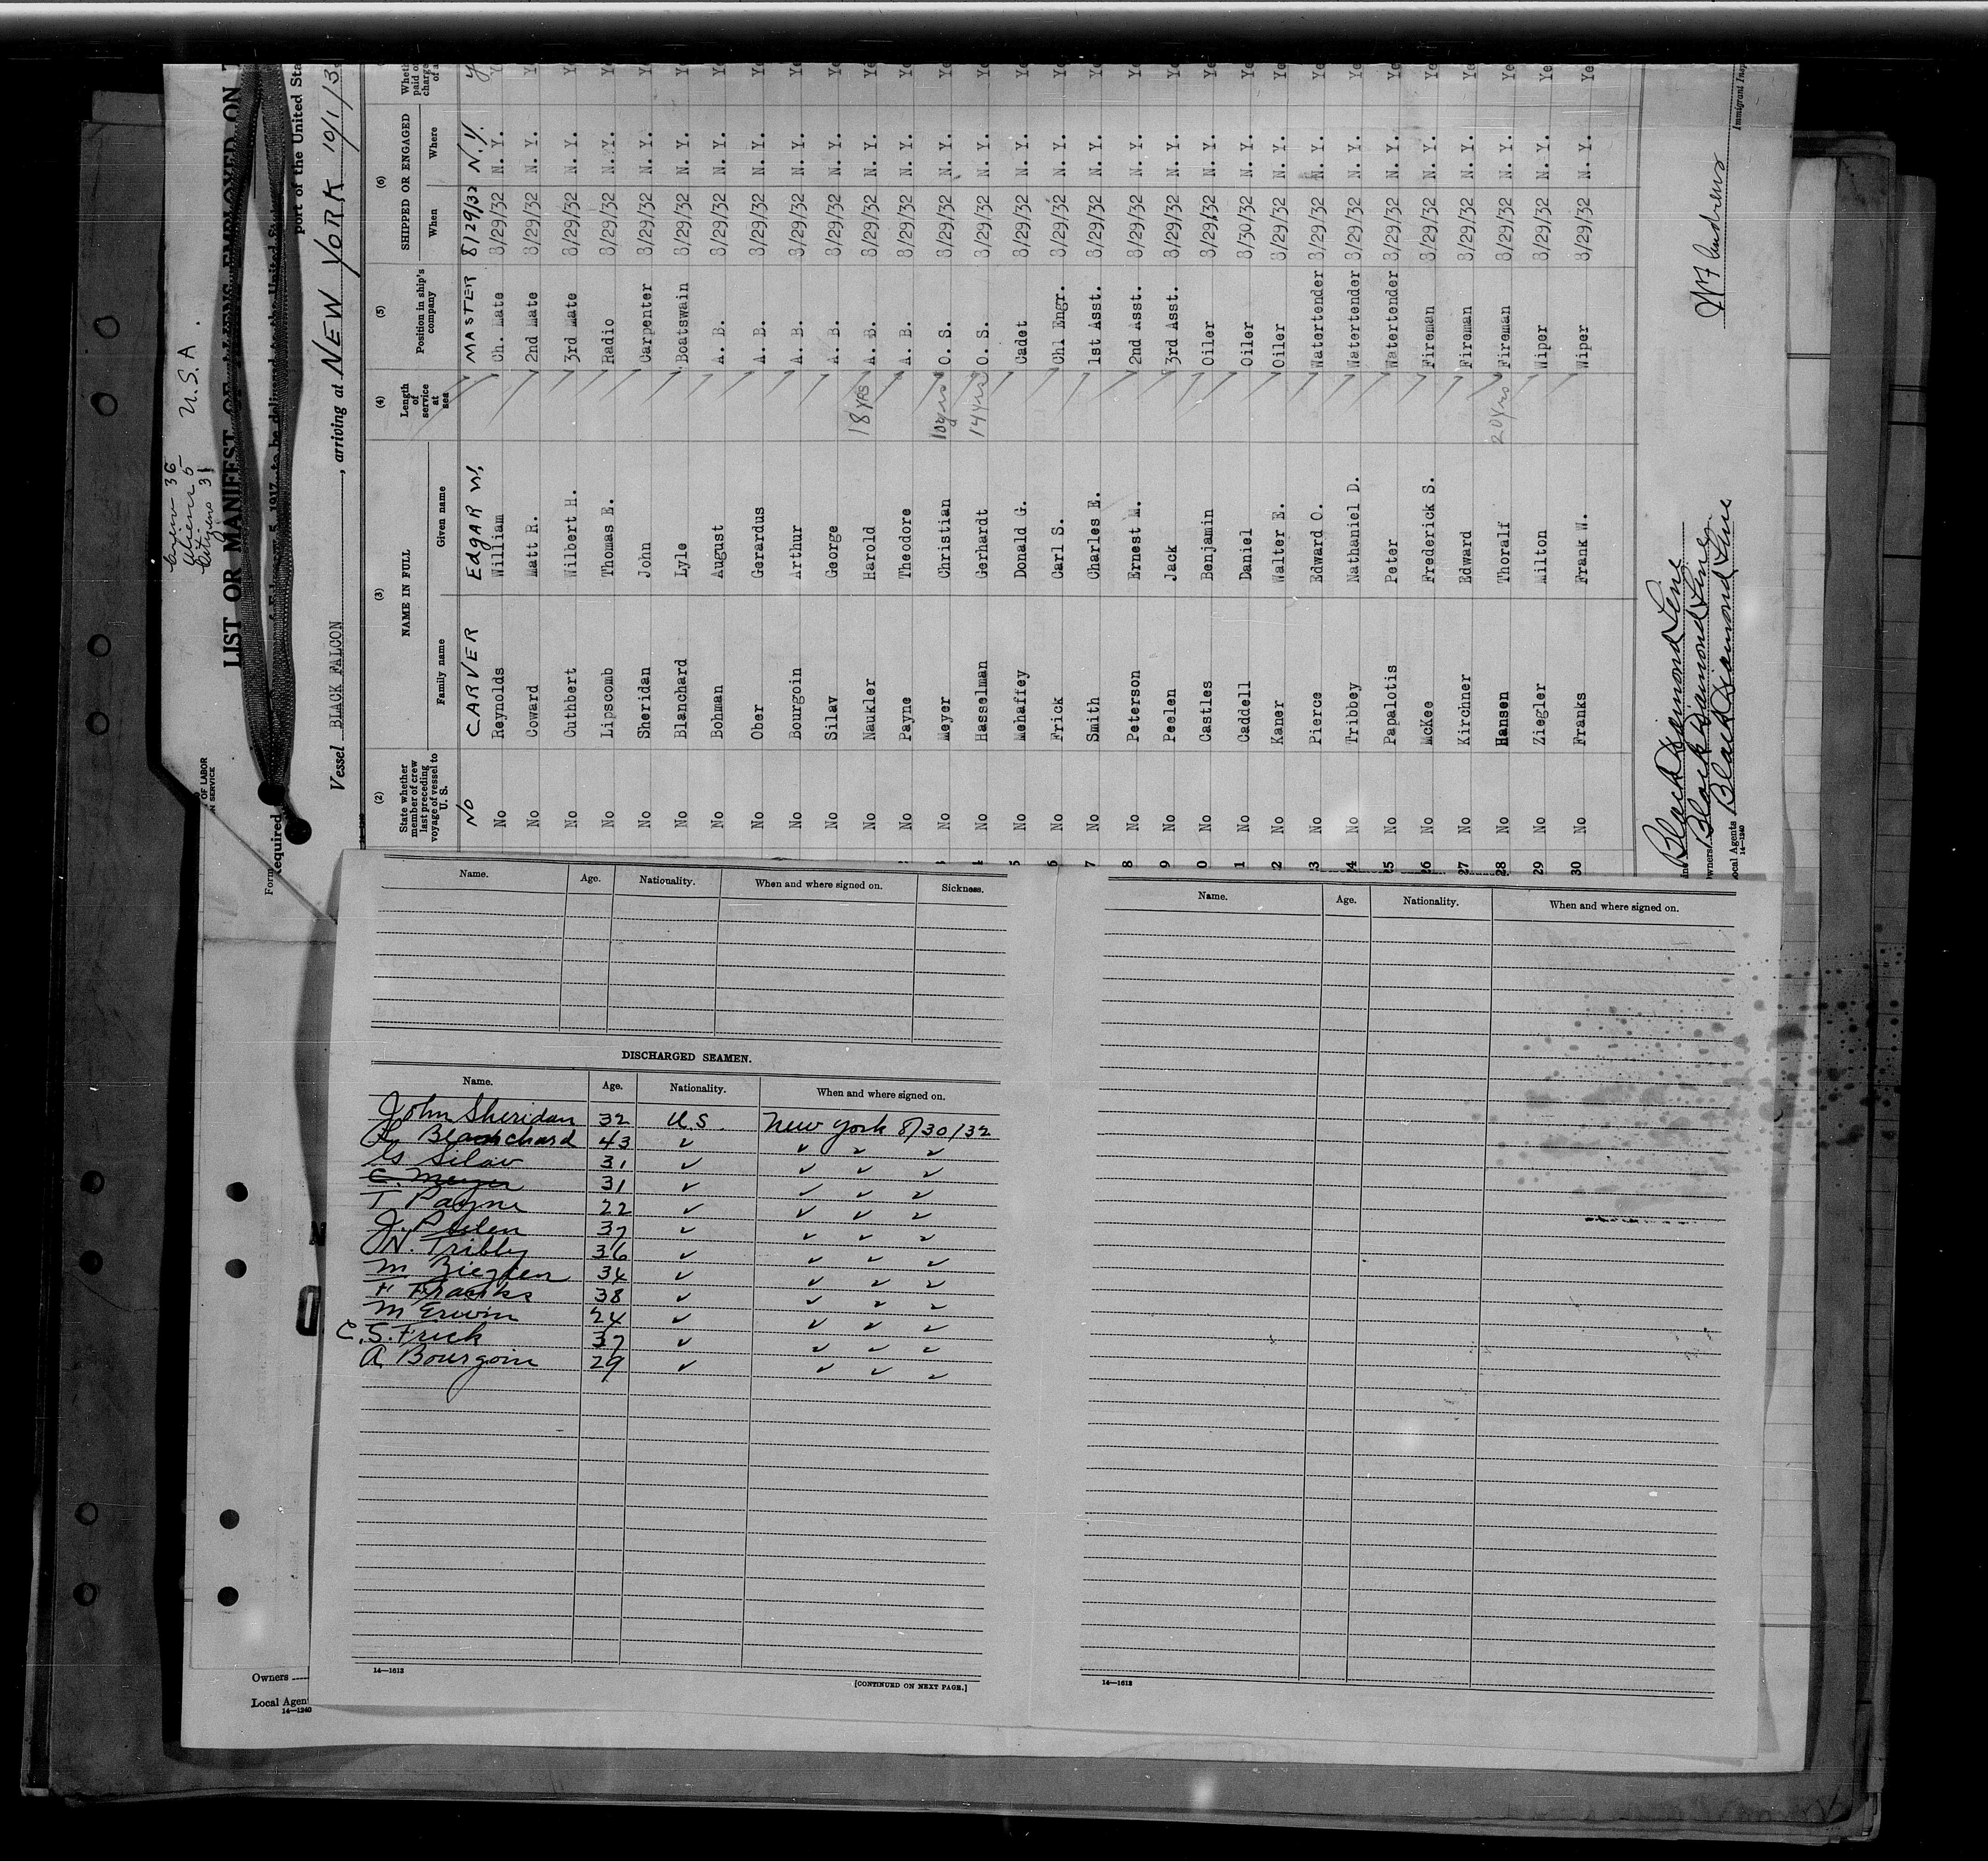 Crew 36
Aliens 5
Citizens 31
U.S.A.
LIST OR MANIFEST OF ALIENS EMPLOYED ON T
port of the United Sta
OF LABOR
N SERVICE
Form
Required
Vessel BLACK FALCON, arriving at NEW YORK 10/1/3
(2) (3) (4) (5) (6)
State whether member of crew last preceding voyage of vessel to U. S.
NAME IN FULL
Family name Given name
Length of service at sea
Position in ship's company
SHIPPED OR ENGAGED
When Where
No CARVER EDGAR W. MASTER 8/29/32 N.Y. Y
No Reynolds William Ch. Mate 8/29/32 N. Y. Y
No Coward Matt R. 2nd Mate 8/29/32 N. Y. Ye
No Cuthbert Wilbert H. 3rd Mate 8/29/32 N. Y. Ye
No Lipscomb Thomas E. Radio 8/29/32 N. Y. Ye
No Sheridan John Carpenter 8/29/32 N. Y. Ye
No Blanchard Lyle Boatswain 8/29/32 N. Y. Ye
No Bohman August A. B. 8/29/32 N. Y. Ye
No Ober Gerardus A. B. 8/29/32 N. Y. Ye
No Bourgoin Arthur A. B. 8/29/32 N. Y. Ye
No Silav George A. B. 8/29/32 N. Y. Ye
No Naukler Harold 18 yrs A. B. 8/29/32 N. Y. Ye
No Payne Theodore A. B. 8/29/32 N. Y. Ye
No Meyer Christian 10 yrs O. S. 8/29/32 N. Y. Ye
No Hasselman Gerhardt 14 yrs O. S. 8/29/32 N. Y. Ye
5 No Mehaffey Donald G. Cadet 8/29/32 N. Y. Ye
6 No Frick Carl S. Chl Engr. 8/29/32 N. Y. Ye
7 No Smith Charles E. 1st Asst. 8/29/32 N. Y. Ye
8 No Peterson Ernest M. 2nd Asst. 8/29/32 N. Y. Ye
9 No Peelen Jack 3rd Asst. 8/29/32 N. Y. Ye
0 No Castles Benjamin Oiler 8/29/32 N. Y. Ye
1 No Caddell Daniel Oiler 8/30/32 N. Y. Ye
22 No Kaner Walter E. Oiler 8/29/32 N. Y. Ye
23 No Pierce Edward O. Watertender 8/29/32 N. Y. Ye
24 No Tribbey Nathaniel D. Watertender 8/29/32 N. Y. Ye
25 No Papalotis Peter Watertender 8/29/32 N. Y. Ye
26 No McKee Frederick S. Fireman 8/29/32 N. Y. Ye
27 No Kirchner Edward Fireman 8/29/32 N. Y. Ye
28 No Hansen Thoralf 20 yrs Fireman 8/29/32 N. Y. Ye
29 No Ziegler Milton Wiper 8/29/32 N. Y. Ye
30 No Franks Frank W. Wiper 8/29/32 N. Y. Ye
Black Diamond Line
Owners Black Diamond Lines
Local Agents Black Diamond Line
14—1240
Immigrant Insp
Name. Age. Nationality. When and where signed on. Sickness.
DISCHARGED SEAMEN.
Name. Age. Nationality. When and where signed on.
John Sheridan 32 U.S. New York 8/30/32
L Blanchard 43 " " " "
G Silav 31 " " " "
C. Meyer 31 " " " "
T Payne 22 " " " "
J. Peelen 37 " " " "
N. Tribby 36 " " " "
M Ziegler 34 " " " "
F Franks 38 " " " "
M Erwin 24 " " " "
C. S. Frick 37 " " " "
A Bourgoin 29 " " " "
14—1613
[CONTINUED ON NEXT PAGE.]
Name. Age. Nationality. When and where signed on.
14—1613
Owners
Local Agent
14—1240